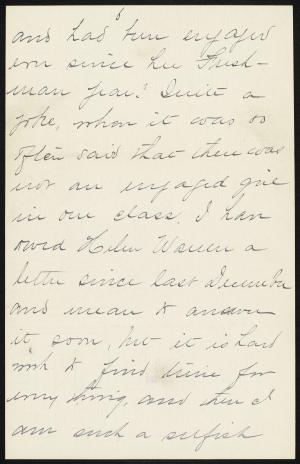 6
and had been engaged
ever since her Fresh-
man year! Quite a
joke, when it was so
often said that there was
not an engaged girl
in our class. I have
owed Helen Warren a
letter since last December
and mean to answer
it soon, but it is hard
work to find time for
everything, and then I
am such a selfish